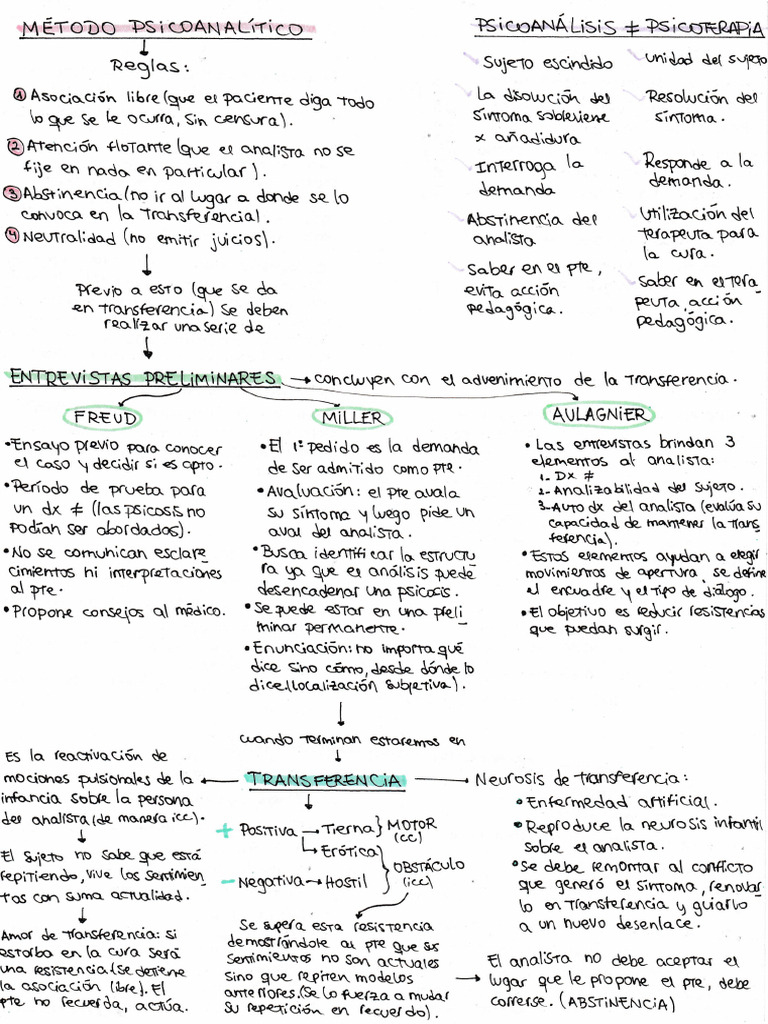 MÉTODO PSICOANALÍTICO
Reglas:
1 Asociación libre (que el paciente diga todo
lo que se le ocurra, sin censura).
2 Atención flotante (que el analista no se
fije en nada en particular).
3 Abstinencia (no ir al lugar a donde se lo
convoca en la transferencia).
4 Neutralidad (no emitir juicios).
Previo a esto (que se da
en transferencia) se deben
realizar una serie de
PSICOANÁLISIS ≠ PSICOTERAPIA
Sujeto escindido
Unidad del sujeto
La disolución del
síntoma sobreviene
x añadidura
Resolución del
síntoma.
Interroga la
demanda
Responde a la
demanda.
Abstinencia del
analista
Utilización del
terapeuta para
la cura.
Saber en el pte,
evita acción
pedagógica.
Saber en el tera
peuta, acción
pedagógica.
ENTREVISTAS PRELIMINARES → concluyen con el advenimiento de la transferencia.
FREUD
• Ensayo previo para conocer
el caso y decidir si es apto.
• Período de prueba para
un dx ≠ (las psicosis no
podían ser abordados).
• No se comunican esclare
cimientos ni interpretaciones
al pte.
• Propone consejos al médico.
MILLER
• El 1º pedido es la demanda
de ser admitido como pte.
• Avaluación: el pte avala
su síntoma y luego pide un
aval del analista.
• Busca identificar la estructu
ra ya que el análisis puede
desencadenar una psicosis.
• Se puede estar en una preli
minar permanente.
• Enunciación: no importa qué
dice sino cómo, desde dónde lo
dice (localización subjetiva).
AULAGNIER
• Las entrevistas brindan 3
elementos al analista:
1- Dx ≠
2- Analizabilidad del sujeto.
3- Auto dx del analista (evalúa su
capacidad de mantener la trans
ferencia).
• Estos elementos ayudan a elegir
movimientos de apertura, se define
el encuadre y el tipo de diálogo.
• El objetivo es reducir resistencias
que puedan surgir.
cuando terminan estaremos en
TRANSFERENCIA
Es la reactivación de
mociones pulsionales de la
infancia sobre la persona
del analista (de manera icc).
El sujeto no sabe que está
repitiendo, vive los sentimien
tos con suma actualidad.
Amor de transferencia: si
estorba en la cura será
una resistencia (se detiene
la asociación libre). El
pte no recuerda, actúa.
+ Positiva → Tierna } MOTOR
(cc)
→ Erótica
- Negativa → Hostil } OBSTÁCULO
(icc)
Se supera esta resistencia
demostrándole al pte que sus
sentimientos no son actuales
sino que repiten modelos
anteriores. (Se lo fuerza a mudar
su repetición en recuerdo).
Neurosis de transferencia:
• Enfermedad artificial.
• Reproduce la neurosis infantil
sobre el analista.
• Se debe remontar al conflicto
que generó el síntoma, renovar
lo en transferencia y guiarlo
a un nuevo desenlace.
El analista no debe aceptar el
lugar que le propone el pte, debe
correrse. (ABSTINENCIA)